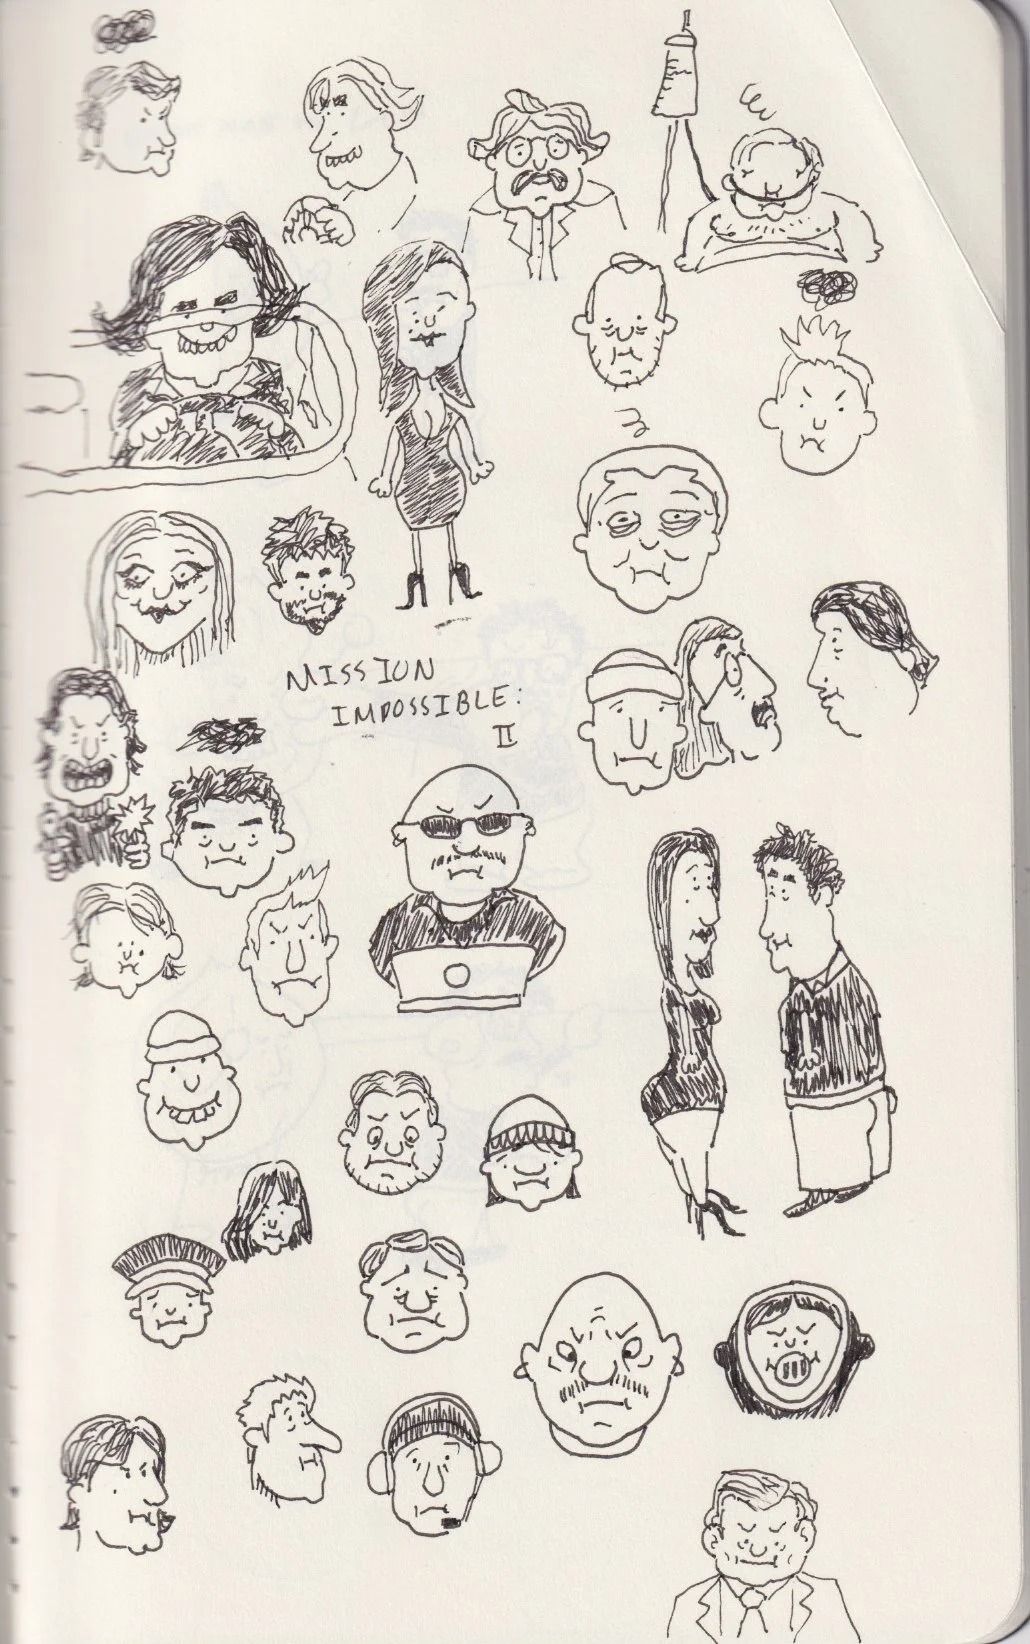 MISSION
IMPOSSIBLE:
II